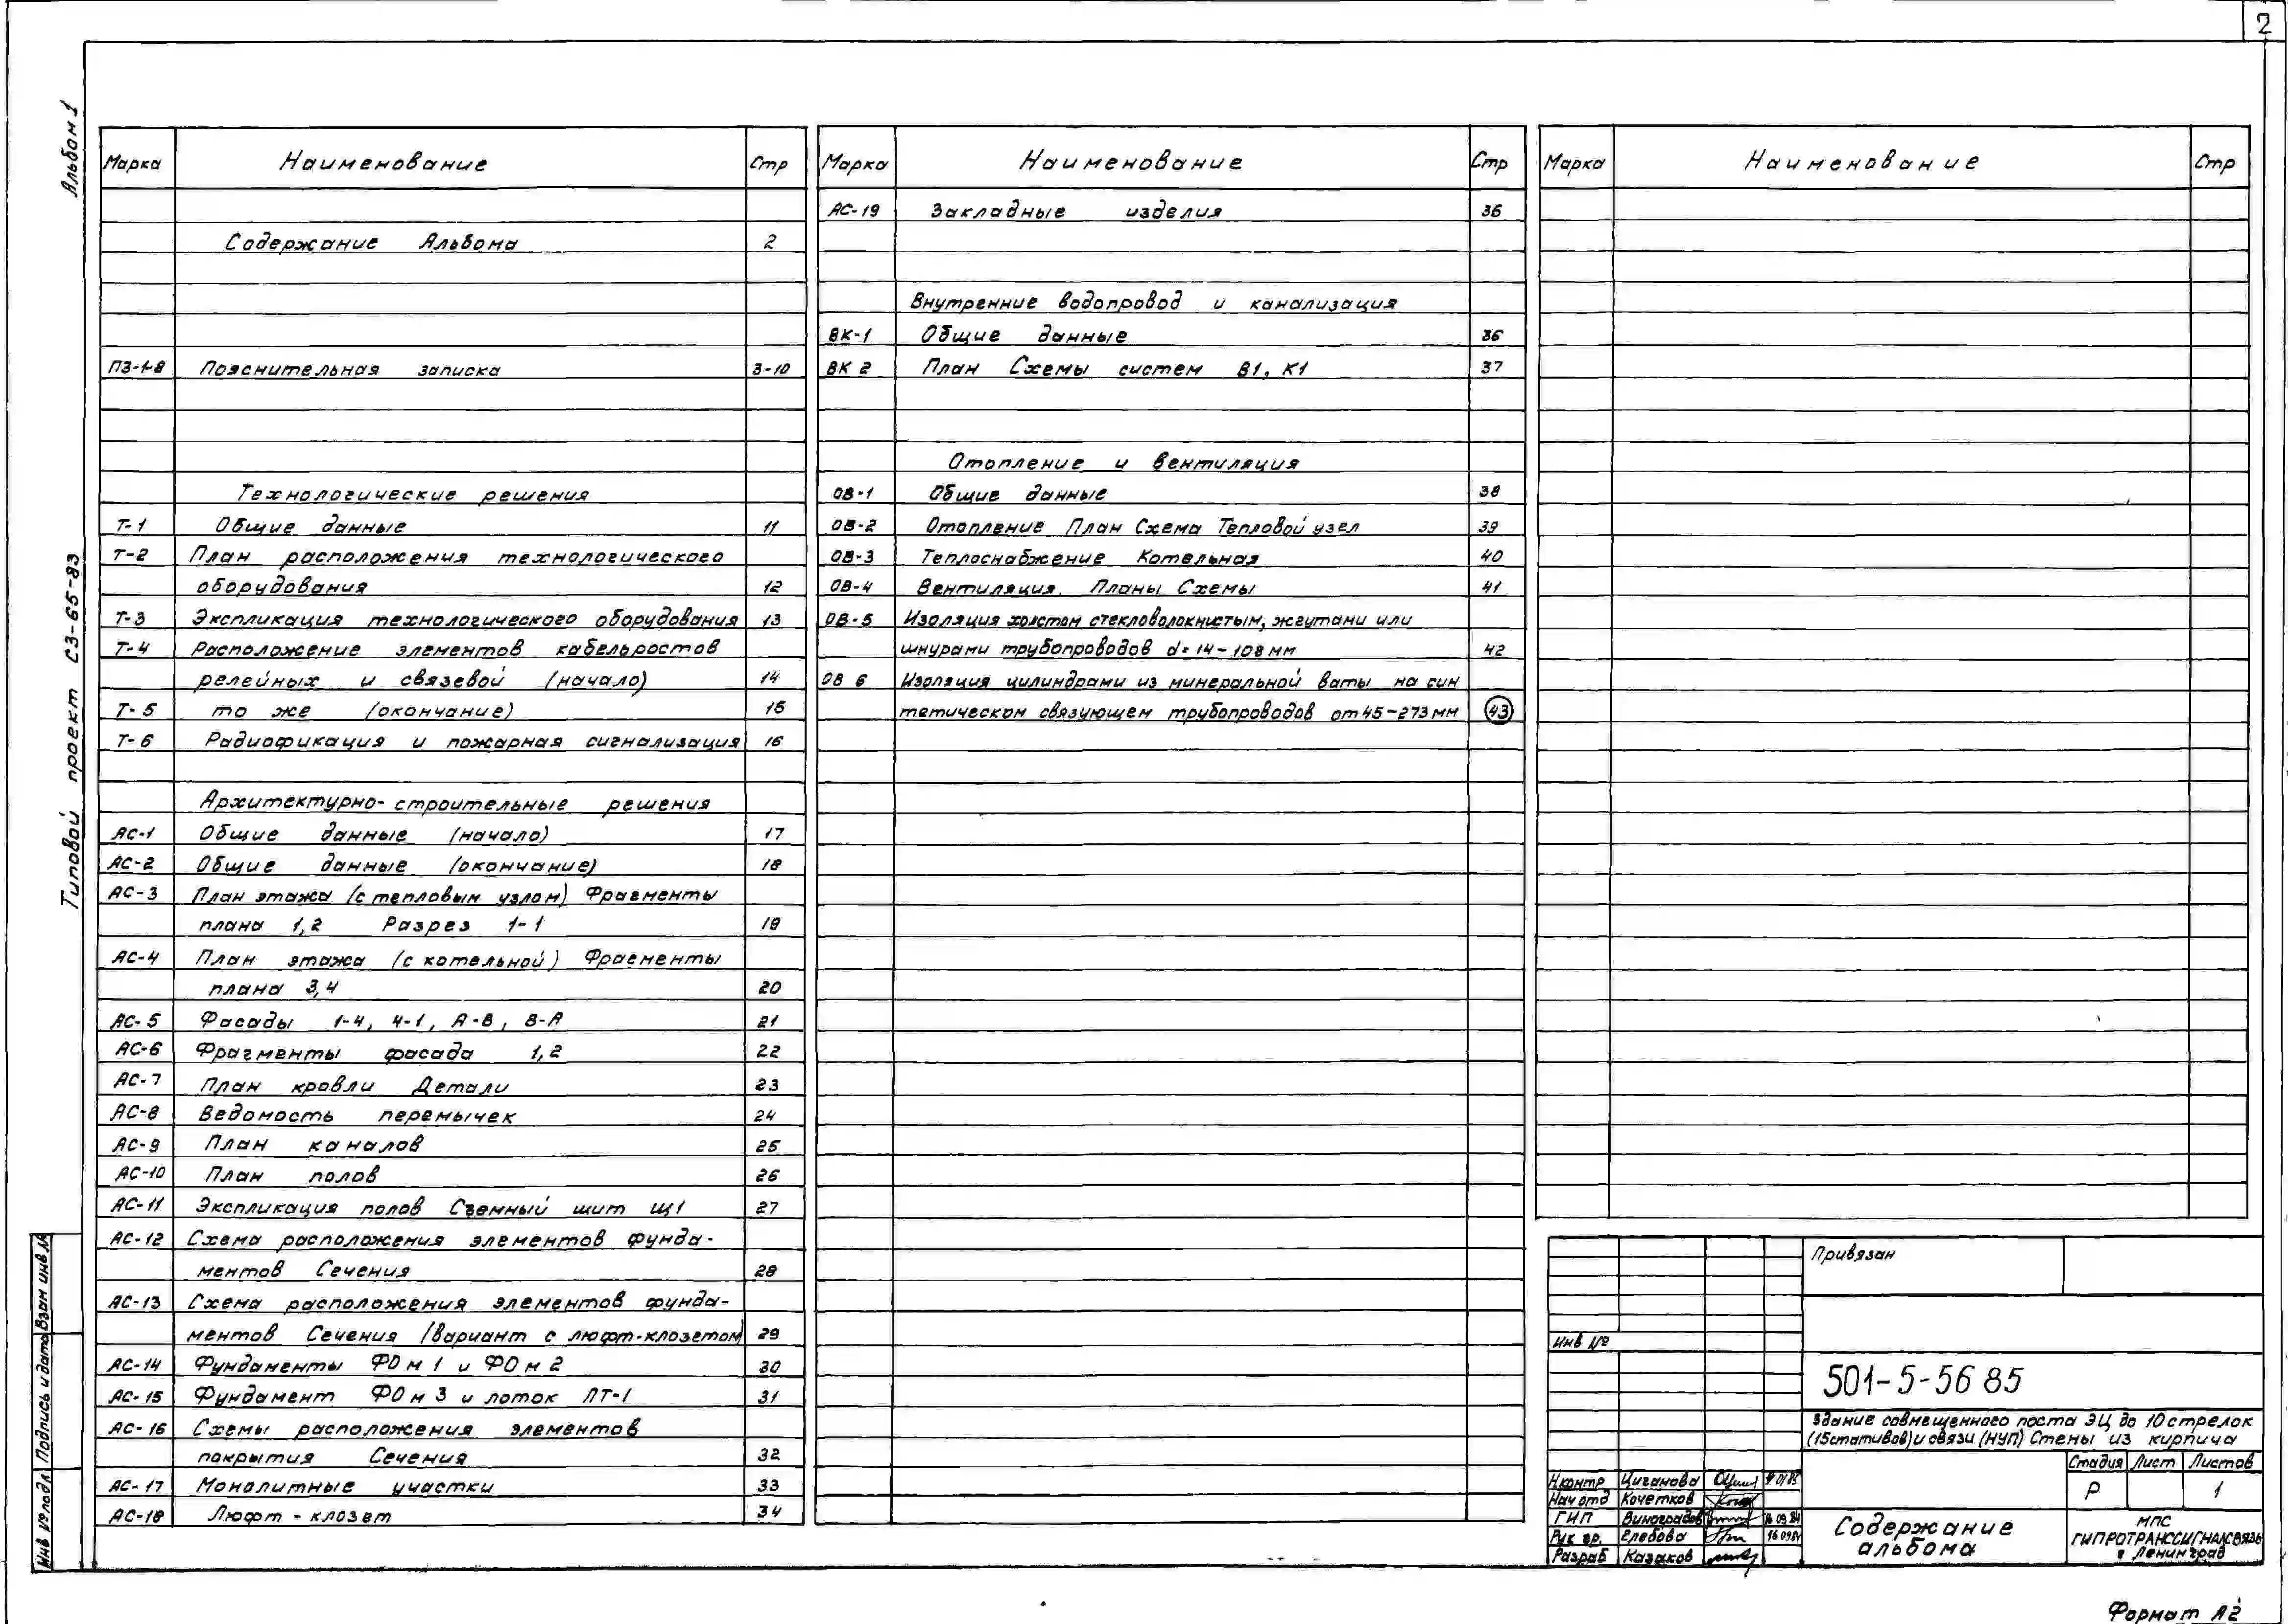 2
Альбом 1
Типовой проект СЗ-65-83
Марка Наименование Стр
Содержание Альбома 2
ПЗ-1-8 Пояснительная записка 3-10
Технологические решения
Т-1 Общие данные 11
Т-2 План расположения технологического
оборудования 12
Т-3 Экспликация технологического оборудования 13
Т-4 Расположение элементов кабельростов
релейных и связевой (начало) 14
Т-5 то же (окончание) 15
Т-6 Радиофикация и пожарная сигнализация 16
Архитектурно-строительные решения
АС-1 Общие данные (начало) 17
АС-2 Общие данные (окончание) 18
АС-3 План этажа (с тепловым узлом) Фрагменты
плана 1,2 Разрез 1-1 19
АС-4 План этажа (с котельной) Фрагменты
плана 3,4 20
АС-5 Фасады 1-4, 4-1, А-В, В-А 21
АС-6 Фрагменты фасада 1,2 22
АС-7 План кровли Детали 23
АС-8 Ведомость перемычек 24
АС-9 План каналов 25
АС-10 План полов 26
АС-11 Экспликация полов Съемный щит Щ1 27
АС-12 Схема расположения элементов фунда-
ментов Сечения 28
АС-13 Схема расположения элементов фунда-
ментов Сечения (вариант с люфт-клозетом) 29
АС-14 Фундаменты ФОм1 и ФОм2 30
АС-15 Фундамент ФОм3 и лоток ЛТ-1 31
АС-16 Схемы расположения элементов
покрытия Сечения 32
АС-17 Монолитные участки 33
АС-18 Люфт-клозет 34
Марка Наименование Стр
АС-19 Закладные изделия 36
Внутренние водопровод и канализация
ВК-1 Общие данные 36
ВК 2 План Схемы систем В1, К1 37
Отопление и вентиляция
ОВ-1 Общие данные 38
ОВ-2 Отопление План Схема Тепловой узел 39
ОВ-3 Теплоснабжение Котельная 40
ОВ-4 Вентиляция. Планы Схемы 41
ОВ-5 Изоляция холстом стекловолокнистым, жгутами или
шнурами трубопроводов d=14-108мм 42
ОВ 6 Изоляция цилиндрами из минеральной ваты на син
тетическом связующем трубопроводов от 45-273мм 43
Марка Наименование Стр
Привязан
Инв №
501-5-56 85
Здание совмещенного поста ЭЦ до 10 стрелок
(15 стативов) и связи (НУП) Стены из кирпича
Стадия Лист Листов
Р 1
Н.контр Циганова
Нач отд Кочетков
ГИП Виноградов 16 09 84
Рук гр. Глебова 16 09 84
Разраб Казаков
Содержание
альбома
МПС
ГИПРОТРАНССИГНАЛСВЯЗЬ
г Ленинград
Инв № подл Подпись и дата Взам инв №
Формат А2